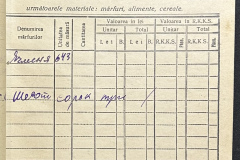 următoarele materiale: mărfuri, alimente, cereale.
Denumirea mărfurilor
Unitatea de măsură
Cantitatea
Valoarea în lei
Valoarea în R.K.K.S.
Unitar
Total
Unitar
Total
Lei
B.
Lei
B.
R.K.K.S.
R.K.K.S.
643
сорок три